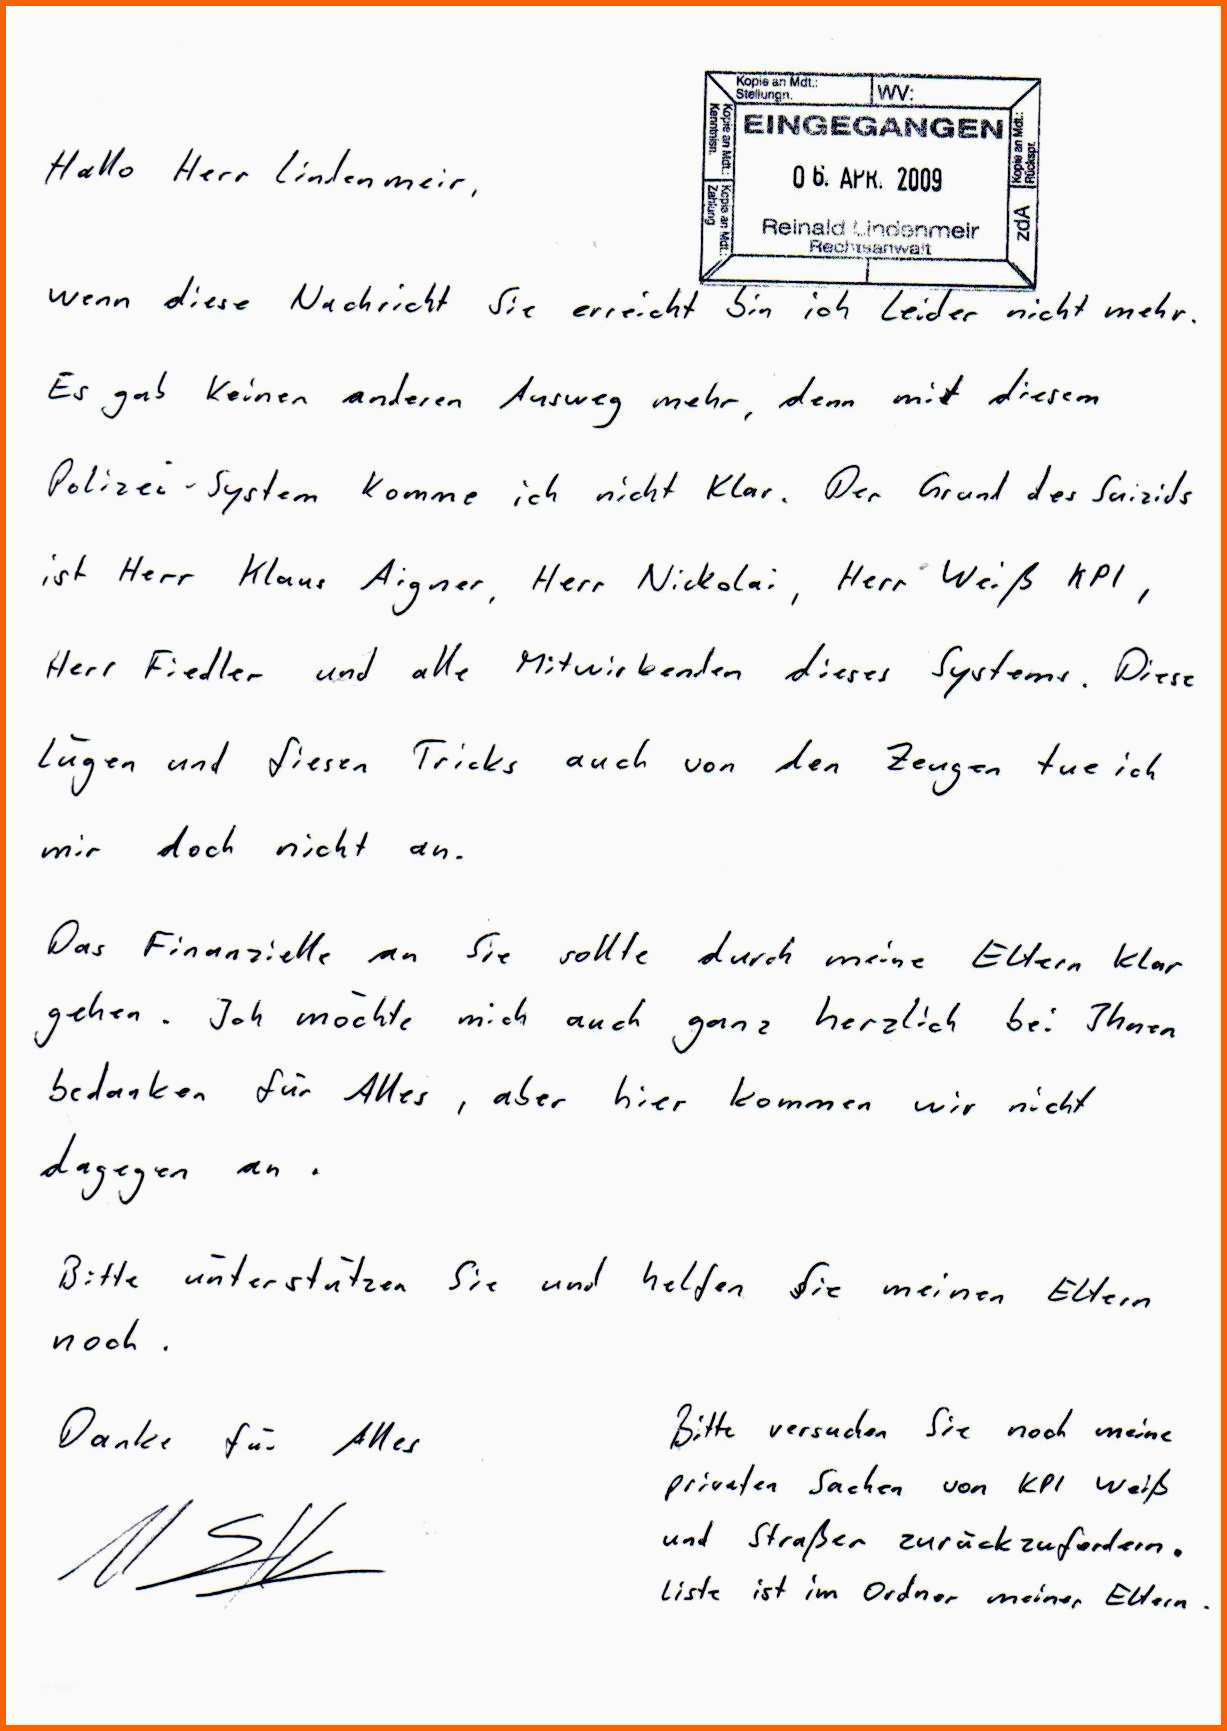 Kopie an Mdt.:
Stellungn.
WV:
Kopie an Mdt.:
Kenntnisn.
Kopie an Mdt.:
Zahlung
Kopie an Mdt.:
Rückspr.
zdA
EINGEGANGEN
06. APR. 2009
Reinald Lindenmeir
Rechtsanwalt
Hallo Herr Lindenmeir,
wenn diese Nachricht Sie erreicht bin ich Leider nicht mehr.
Es gab keinen anderen Ausweg mehr, denn mit diesem
Polizei-System komme ich nicht klar. Der Grund des Suizids
ist Herr Klaus Aigner, Herr Nickolai, Herr Weiß KPI,
Herr Fiedler und alle Mitwirkenden dieses Systems. Diese
Lügen und fiesen Tricks auch von den Zeugen tue ich
mir doch nicht an.
Das Finanzielle an Sie sollte durch meine Eltern klar
gehen. Ich möchte mich auch ganz herzlich bei Ihnen
bedanken für Alles, aber hier kommen wir nicht
dagegen an.
Bitte unterstützen Sie und helfen Sie meinen Eltern
noch.
Danke für Alles
Bitte versuchen Sie noch meine
privaten Sachen von KPI Weiß
und Straßer zurückzufordern.
Liste ist im Ordner meiner Eltern.